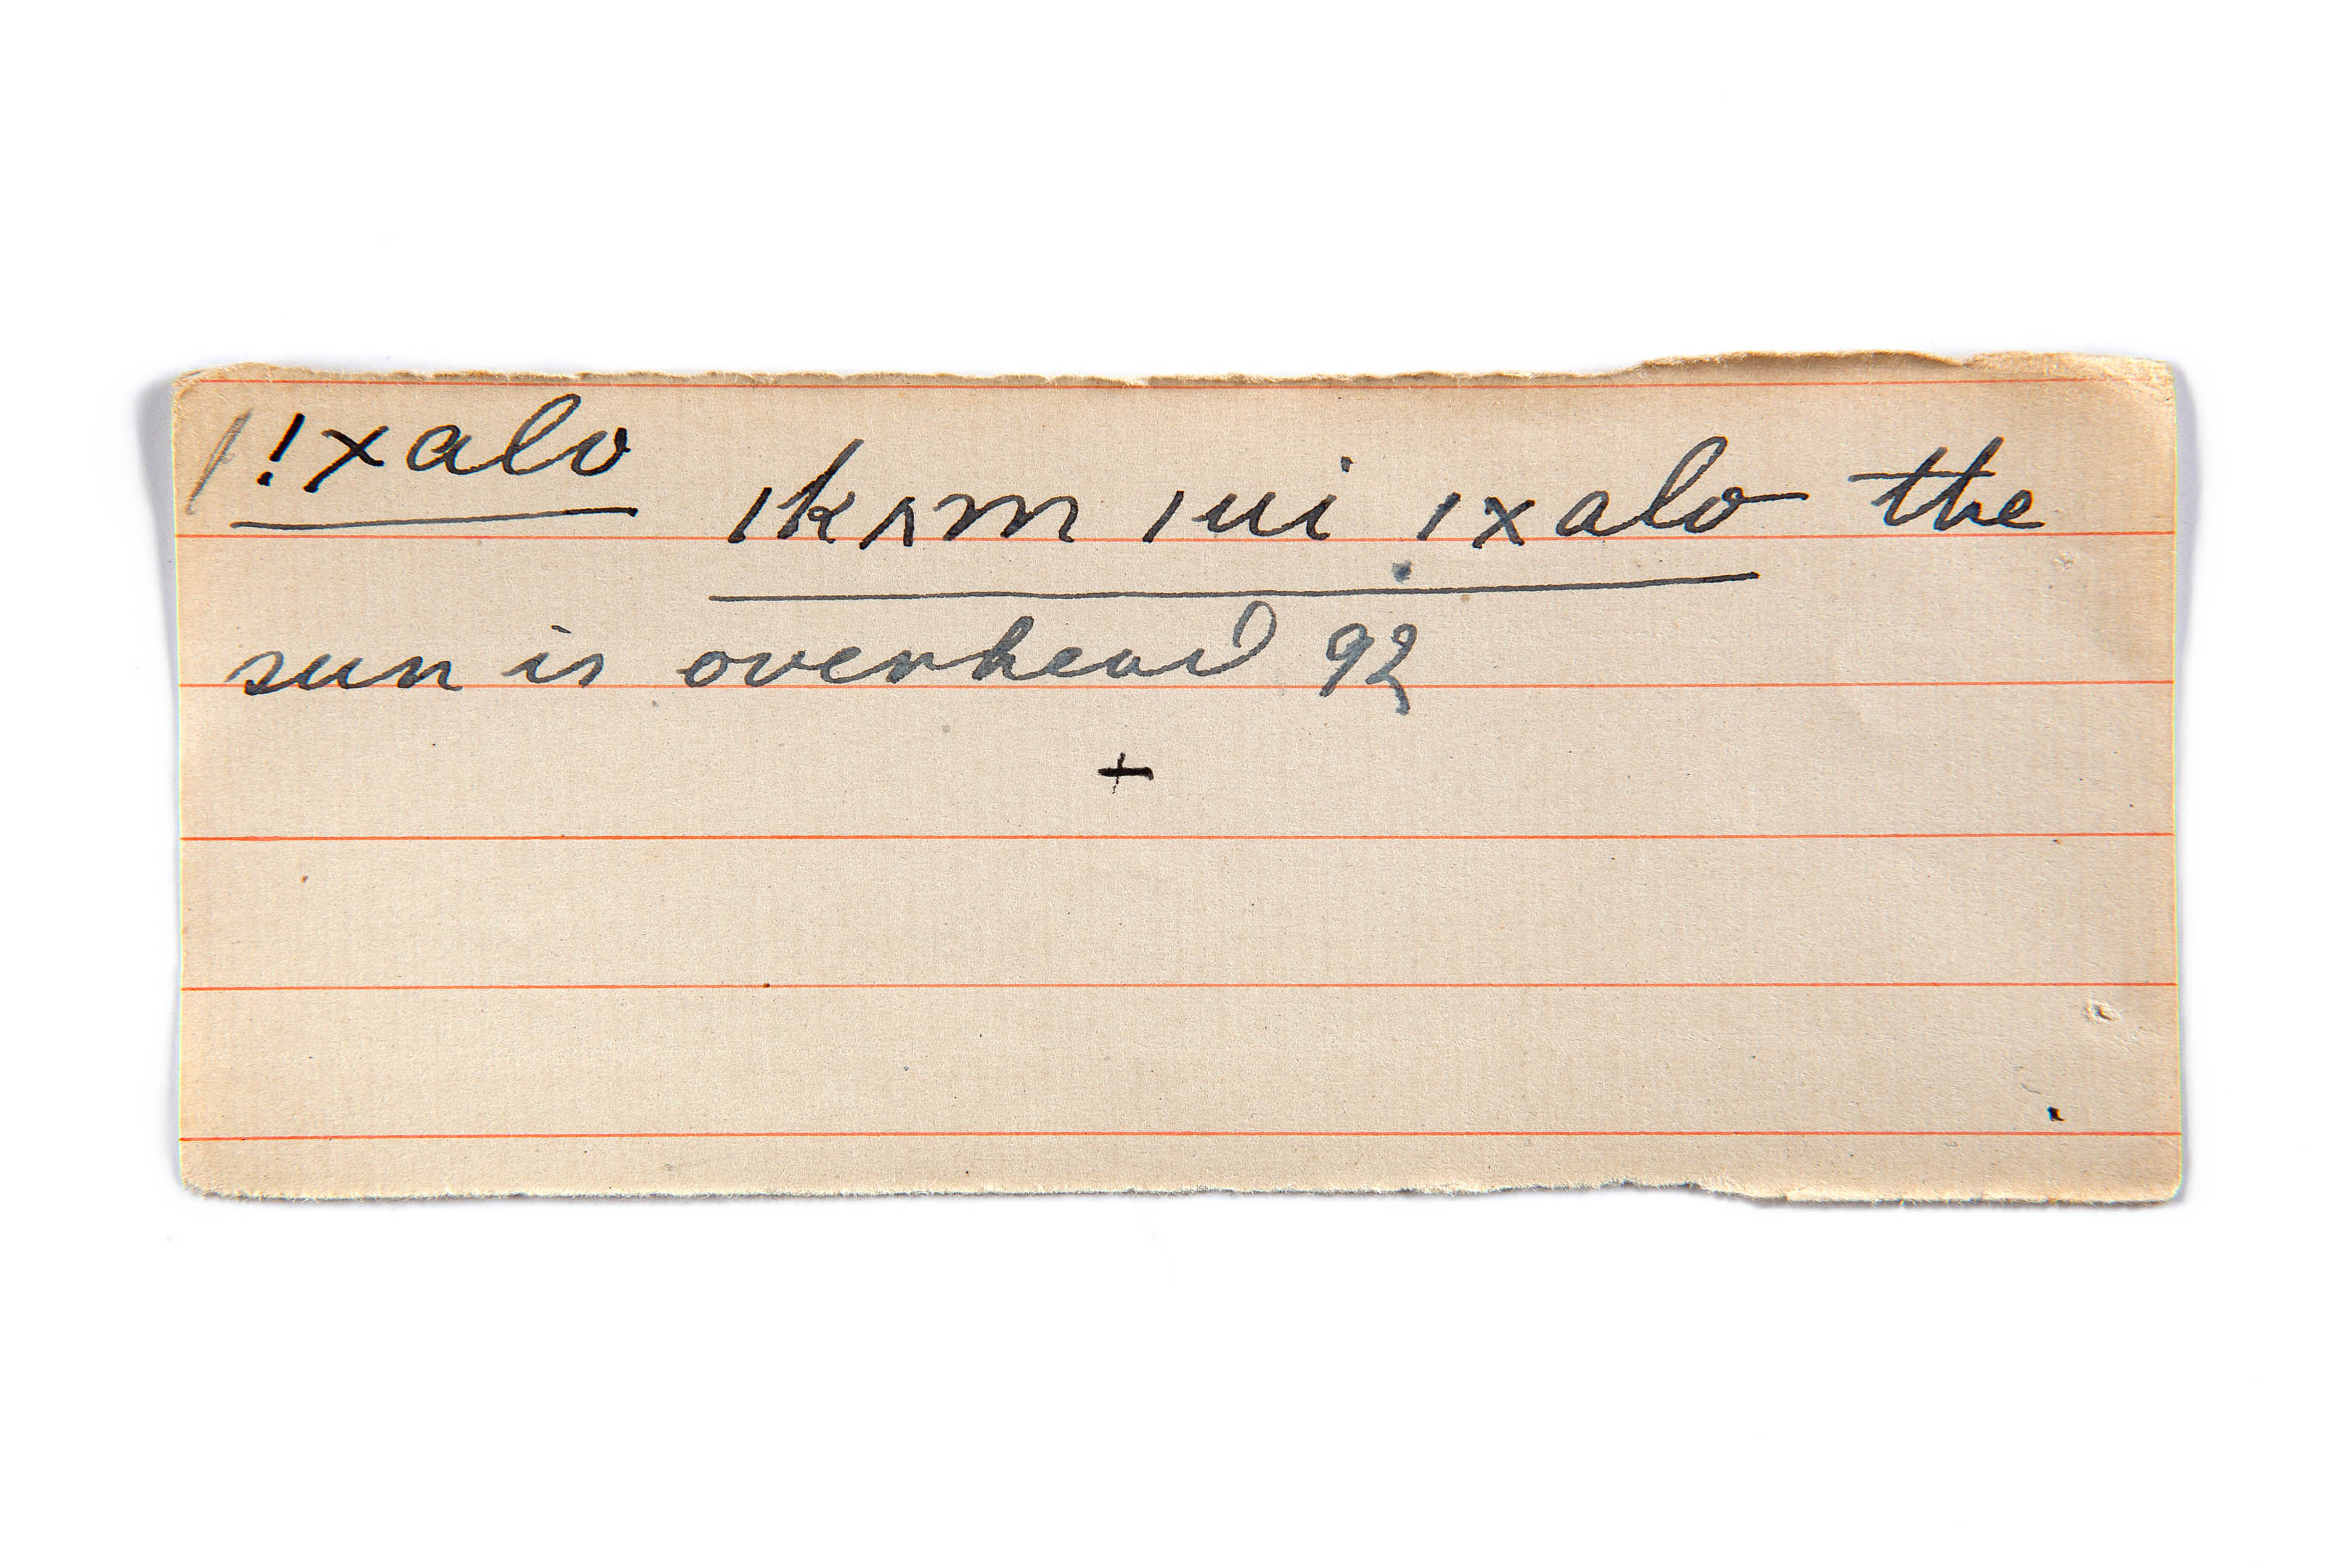 !ıxalo
ıkʌm ıui ıxalo the
sun is overhead 92
+